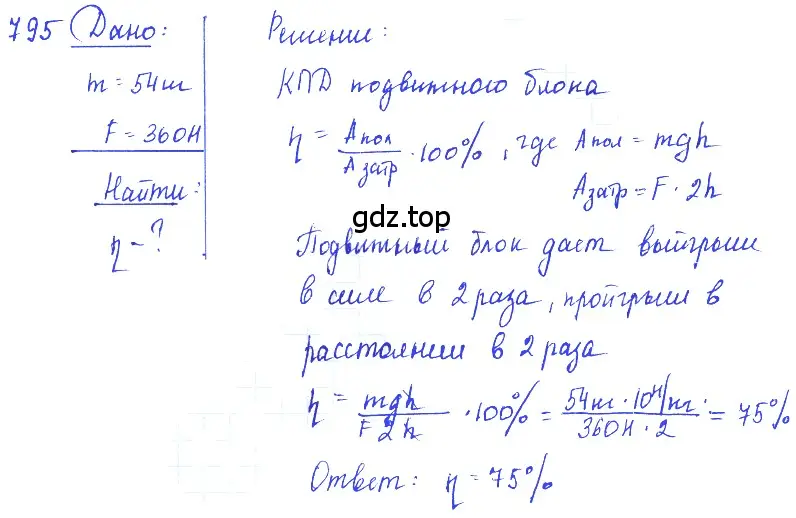 795 Дано:
m = 54кг
F = 360Н
Найти:
η - ?
Решение:
КПД подвижного блока
η = Aпол / Aзатр · 100%, где Aпол = mgh
Aзатр = F · 2h
gdz.top
Подвижный блок дает выйгрыш
в силе в 2 раза, пройгрыш в
расстоянии в 2 раза
η = mgh / F2h · 100% = 54кг · 10Н/кг / 360Н · 2 = 75%
Ответ: η = 75%